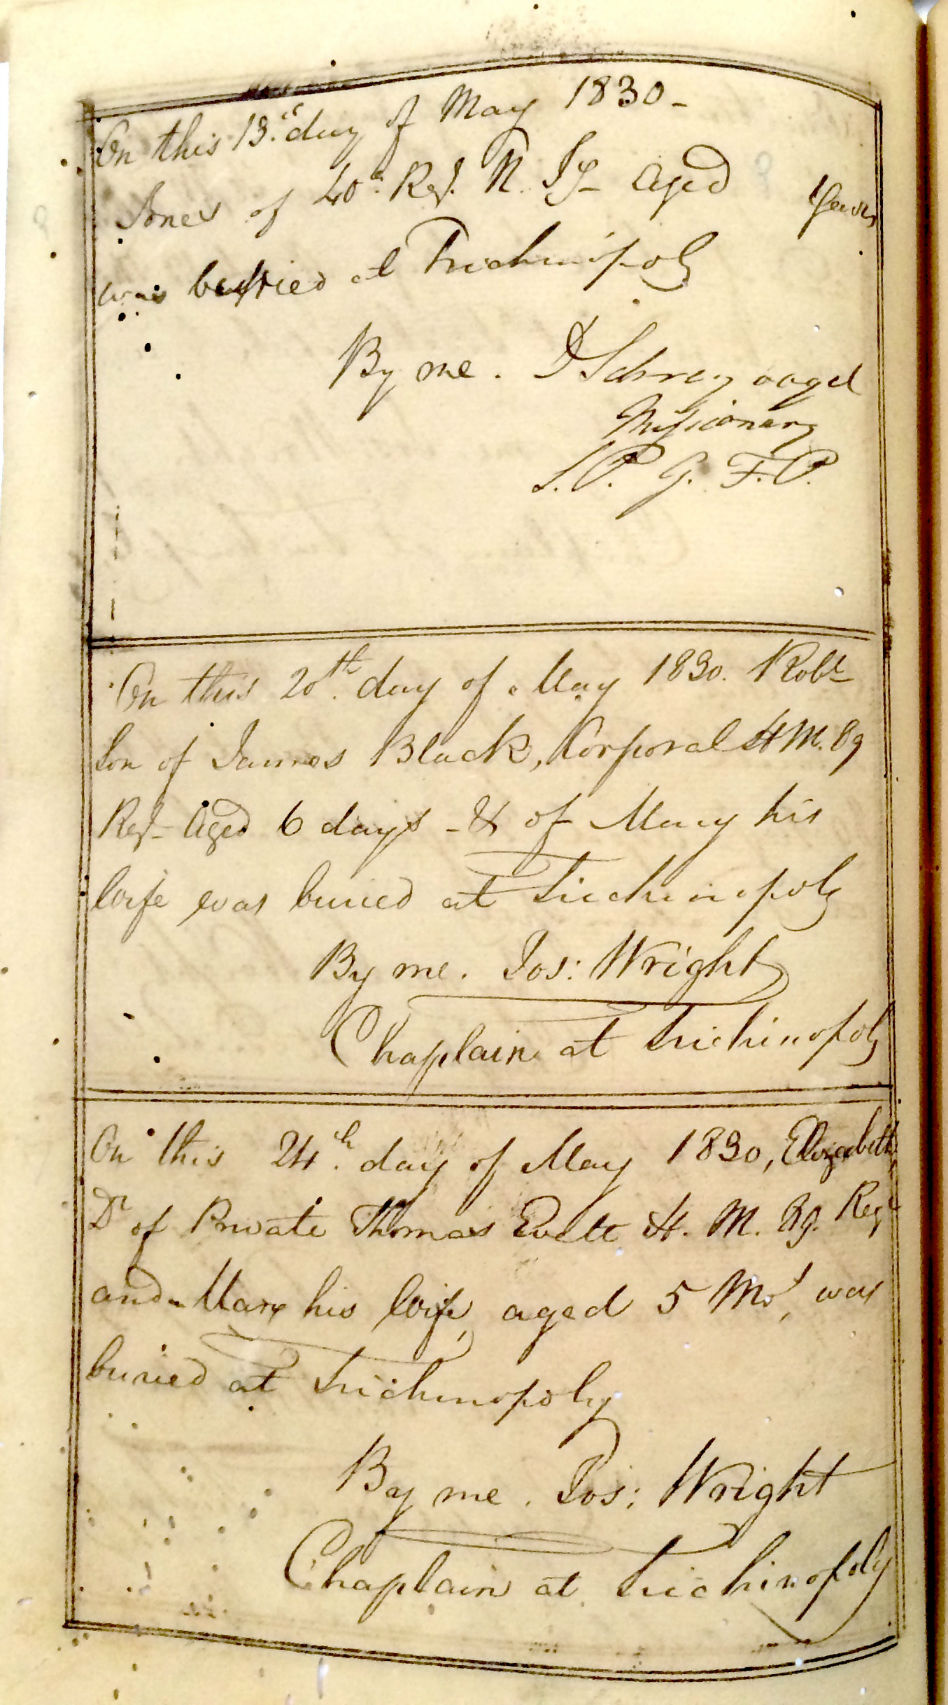 On this 13.th day of May 1830-
Jones of 40th Regt. N. Iy- aged years
was buried at Trichinopoly
By me. D Schreyvogel
Missionary
S. P. G. F. P.
On this 20th. day of May 1830. Robt
Son of James Black, Corporal H M. 89
Regt- aged 6 days - & of Mary his
wife was buried at Trichinopoly
By me. Jos: Wright
Chaplain at Trichinopoly
On this 24.th day of May 1830, Elizabeth
Dr of Private Thomas Evett H. M. 89. Regt
and Mary his wife, aged 5 Ms, was
buried at Trichinopoly
By me. Jos: Wright
Chaplain at Trichinopoly